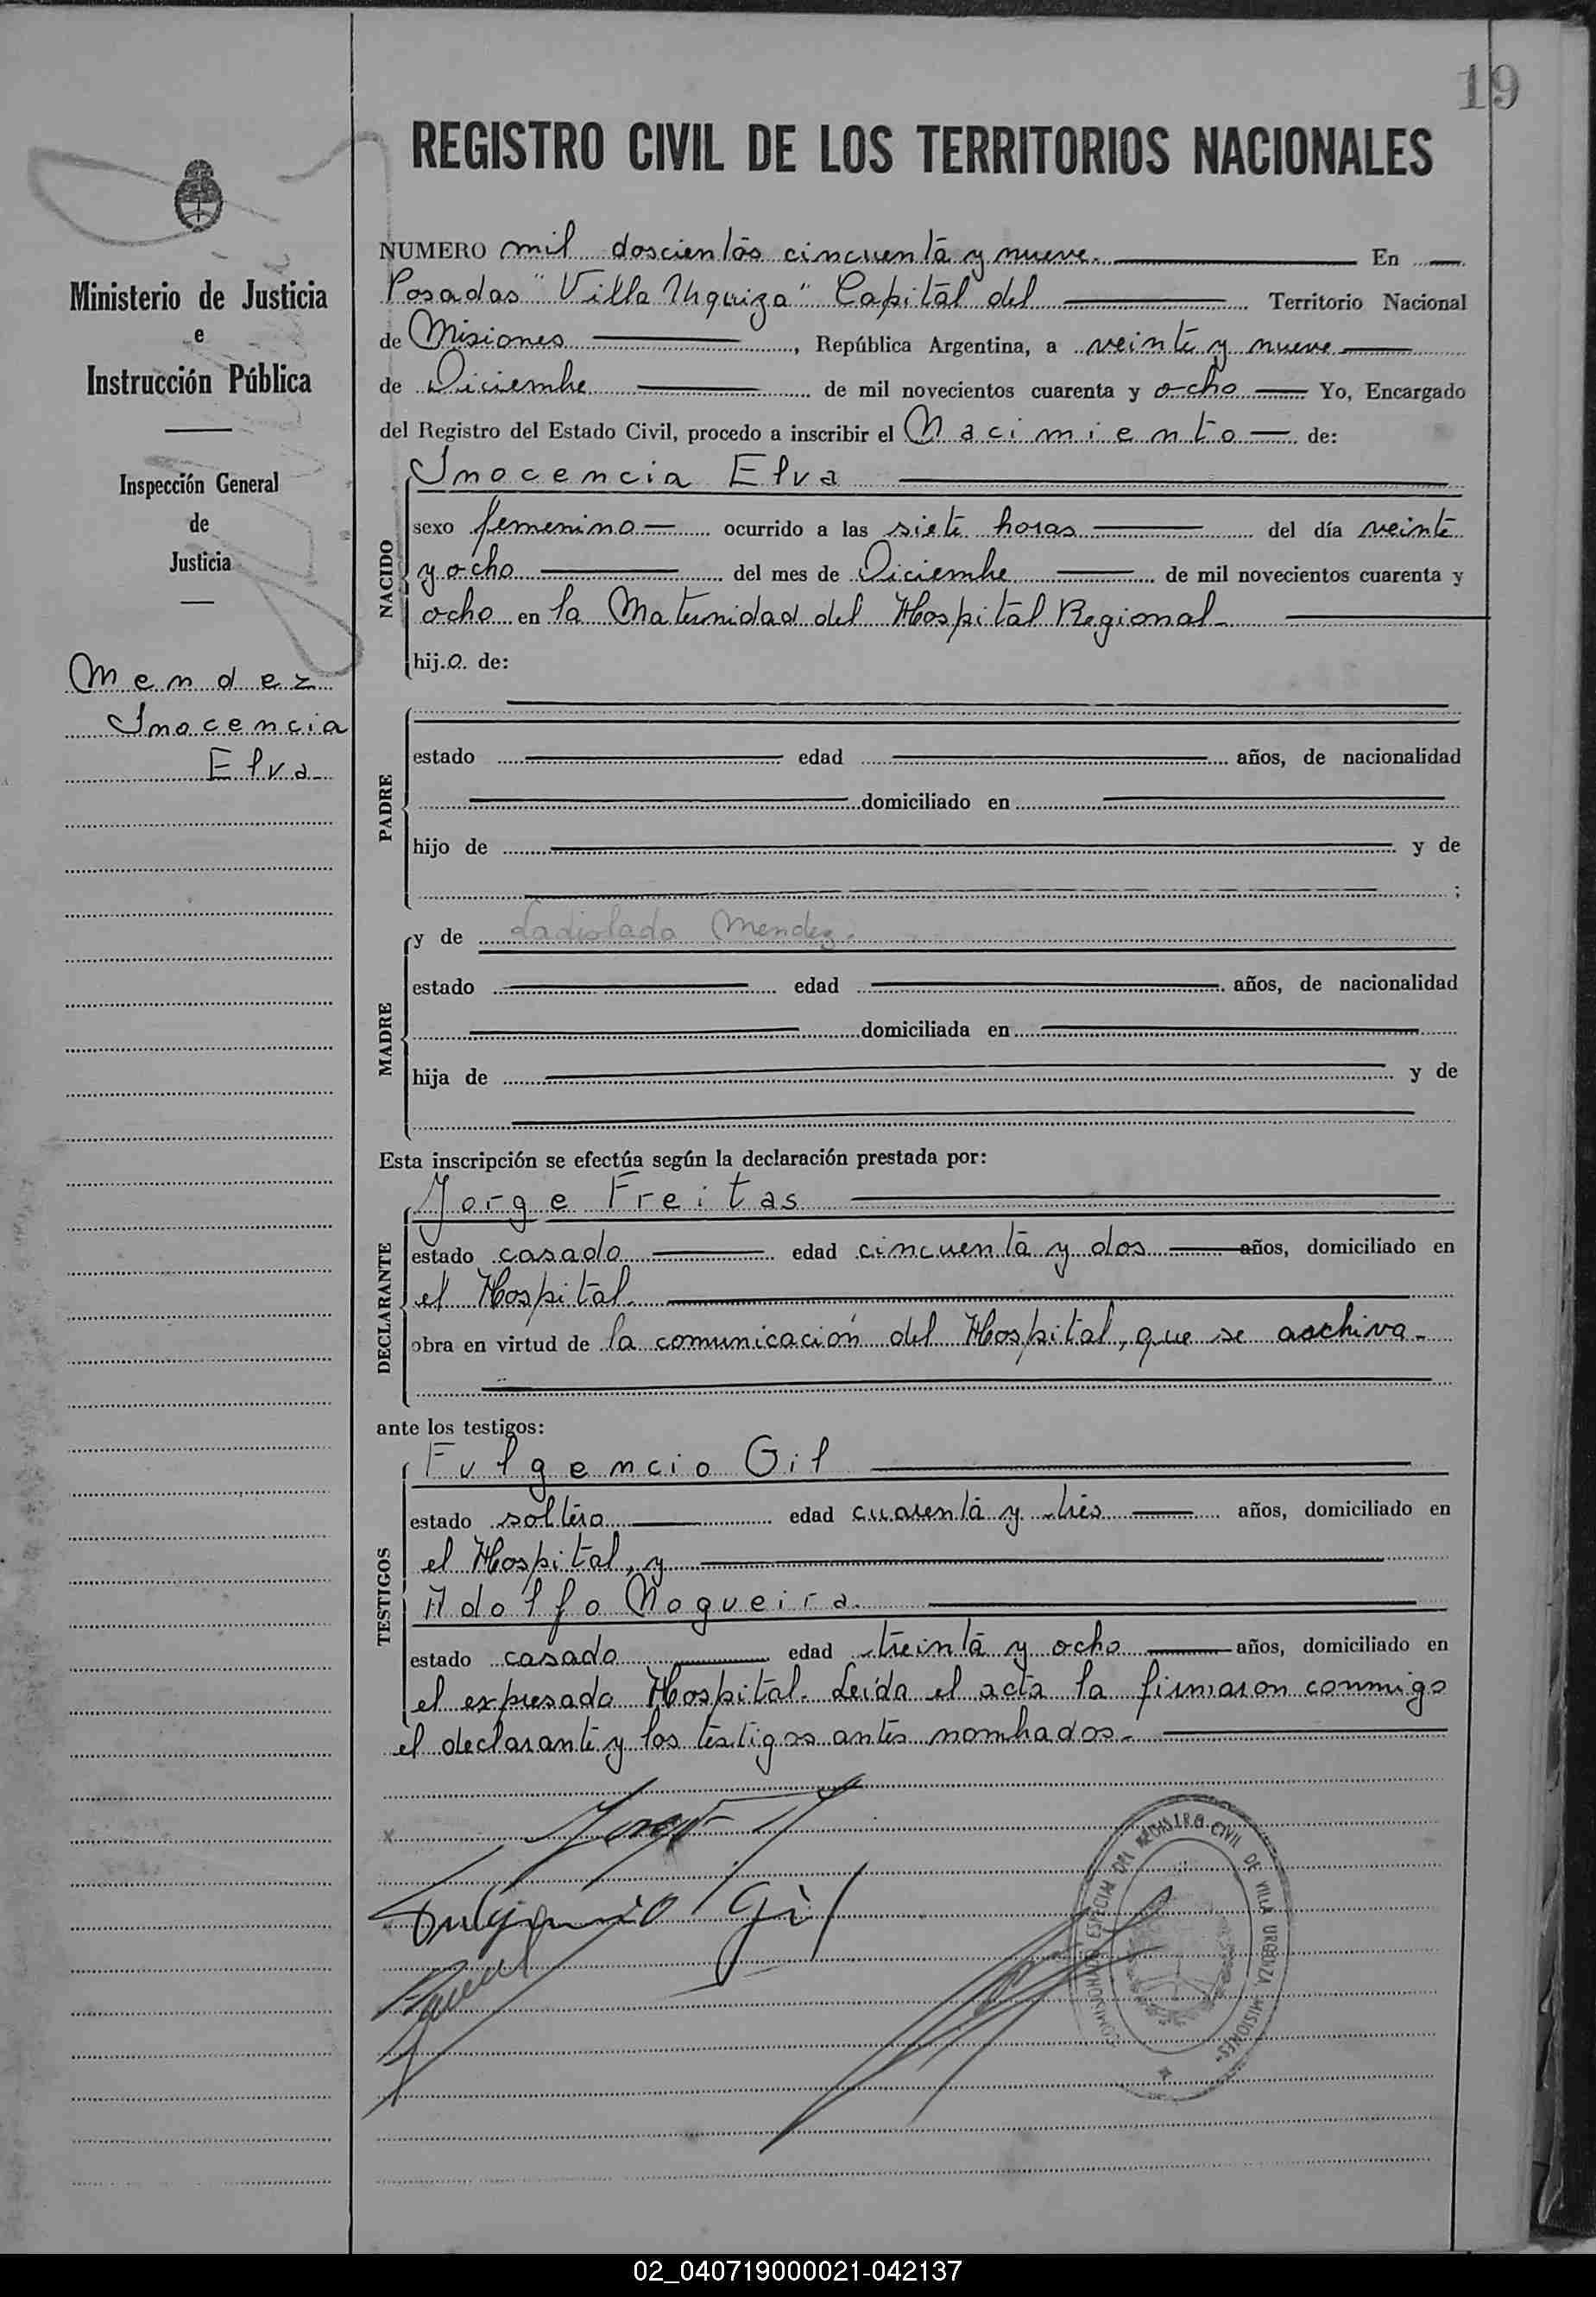 19
REGISTRO CIVIL DE LOS TERRITORIOS NACIONALES
Ministerio de Justicia
e
Instrucción Pública
Inspección General
de
Justicia
Mendez
Inocencia
Elva
NUMERO mil doscientos cincuenta y nueve. En
Posadas "Villa Urquiza" Capital del Territorio Nacional
de Misiones, República Argentina, a veinte y nueve
de Diciembre de mil novecientos cuarenta y ocho Yo, Encargado
del Registro del Estado Civil, procedo a inscribir el Nacimiento de:
NACIDO
Inocencia Elva
sexo femenino ocurrido a las siete horas del día veinte
y ocho del mes de Diciembre de mil novecientos cuarenta y
ocho en la Maternidad del Hospital Regional
hij.o. de:
PADRE
estado edad años, de nacionalidad
domiciliado en
hijo de y de
;
MADRE
y de Ladislada Mendez.
estado edad años, de nacionalidad
domiciliada en
hija de y de
Esta inscripción se efectúa según la declaración prestada por:
DECLARANTE
Jorge Freitas
estado casado edad cincuenta y dos años, domiciliado en
el Hospital.
obra en virtud de la comunicación del Hospital, que se archiva.
ante los testigos:
TESTIGOS
Fulgencio Gil
estado soltero edad cuarenta y tres años, domiciliado en
el Hospital, y
Adolfo Nogueira.
estado casado edad treinta y ocho años, domiciliado en
el expresado Hospital. Leída el acta la firmaron conmigo
el declarante y los testigos antes nombrados.
Fulgencio Gil
COMISIONADO ESPECIAL DEL REGISTRO CIVIL DE VILLA URQUIZA MISIONES
02_040719000021-042137